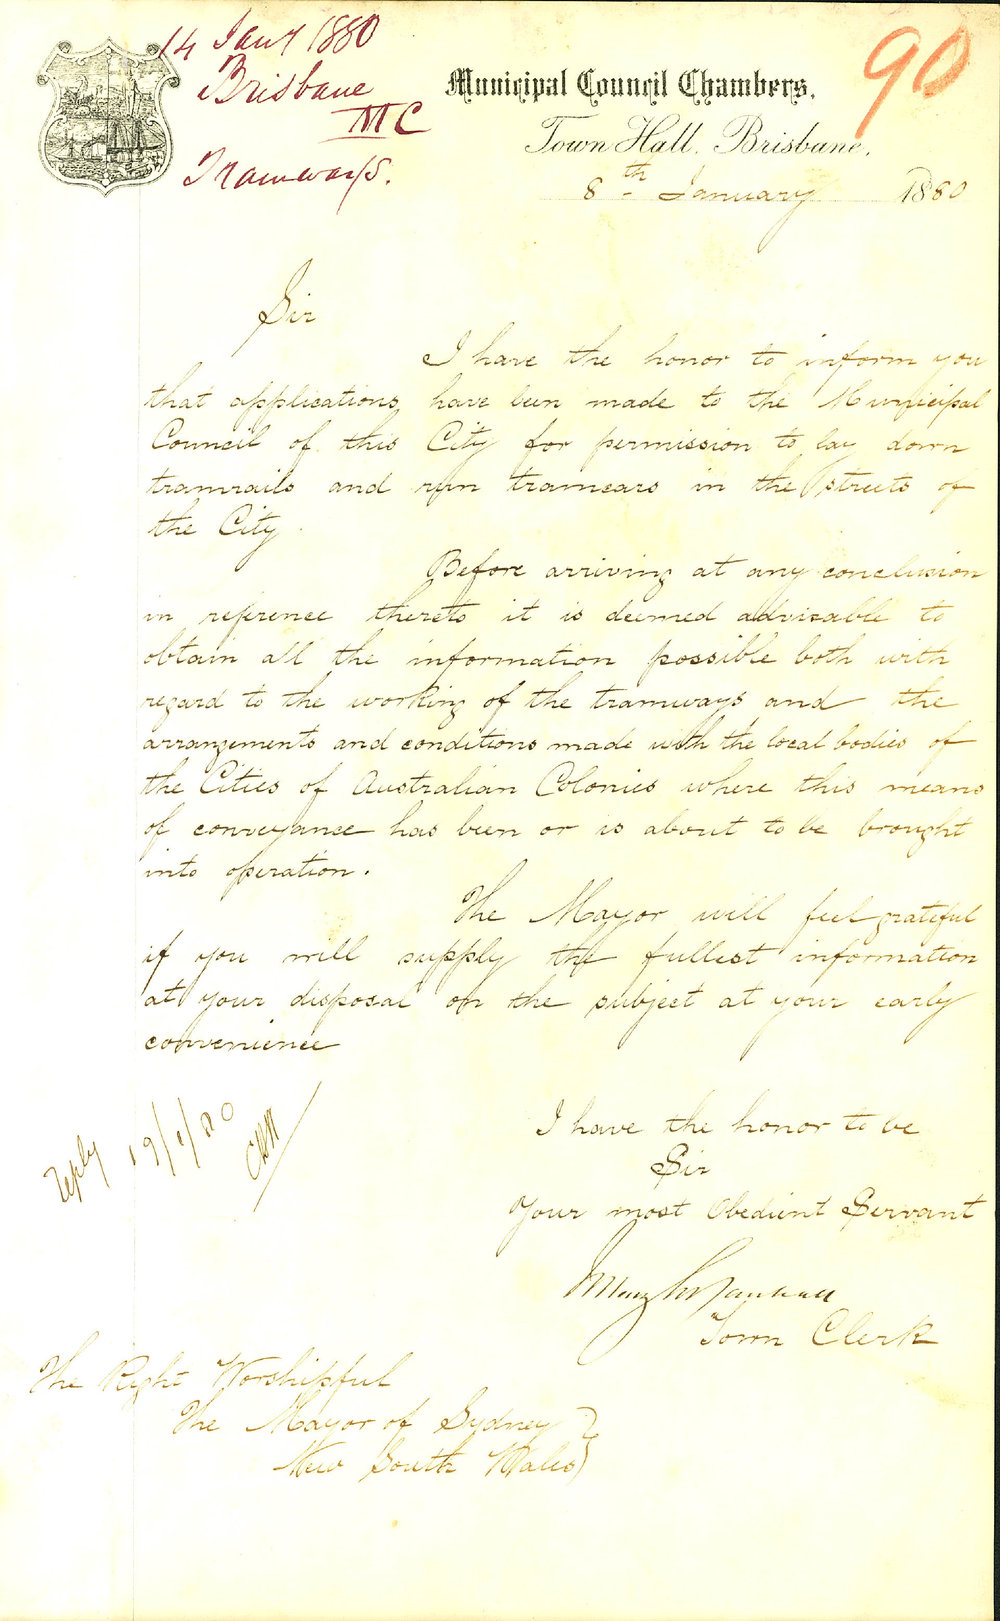 14 Jany 1880
Brisbane
MC
Tramways.
90
Municipal Council Chambers.
Town Hall, Brisbane,
8th January 1880
Sir
I have the honor to inform you
that applications have been made to the Municipal
Council of this City for permission to lay down
tramrails and run tramcars in the streets of
the City.
Before arriving at any conclusion
in reference thereto it is deemed advisable to
obtain all the information possible both with
regard to the working of the tramways and the
arrangements and conditions made with the local bodies of
the Cities of Australian Colonies where this means
of conveyance has been or is about to be brought
into operation.
The Mayor will feel grateful
if you will supply the fullest information
at your disposal on the subject at your early
convenience
reply 19/1/80
I have the honor to be
Sir
Your most Obedient Servant
Town Clerk
The Right Worshipful
The Mayor of Sydney
New South Wales